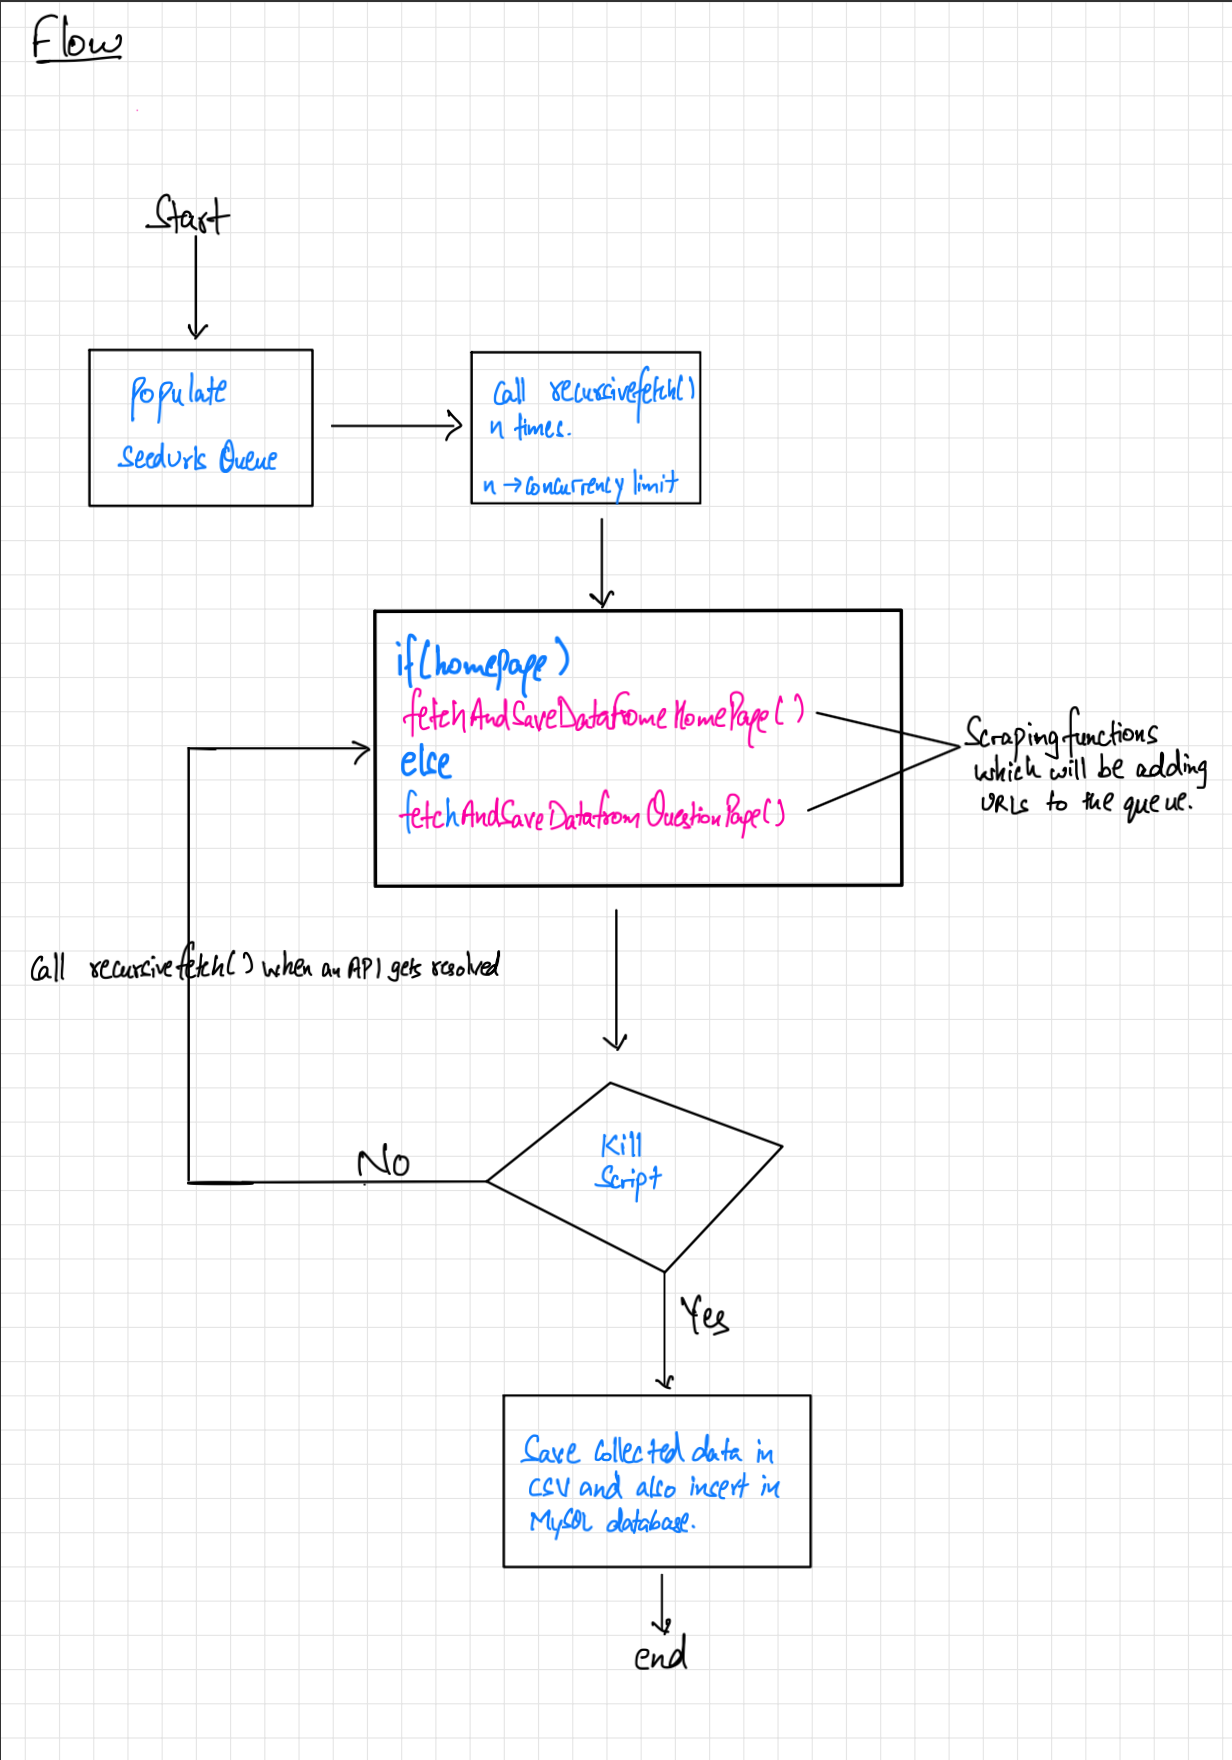 Flow
Start
Populate
SeedUrls Queue
Call recursivefetch()
n times.
n → concurrency limit
if(homepage)
fetchAndSaveDatafromeHomePage()
else
fetchAndSaveDatafromQuestionPage()
Scraping functions
which will be adding
URLs to the queue.
Call recursivefetch() when an API gets resolved
Kill
Script
No
Yes
Save collected data in
CSV and also insert in
MySQL database.
end